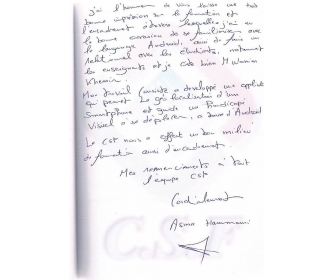 j'ai l'honneur de vous laisser une très
bonne impression sur la formation et
l'encadrement à travers laquelle j'ai eu
la bonne occasion de se familiariser avec
le langage Android, aussi de faire un
relationnel avec les étudiants, notamment
les enseignants et je cite bien M
Mon travail consiste à développé une application
qui permet la géolocalisation d'un
Smartphone et guide un handicapé
Visuel à se déplacer, à base d'Android
Le CST nous a offert un bon milieu
de formation aussi d'encadrement.
Mes remerciements à tout
l'équipe CST
Cordialement
Asma Hammami